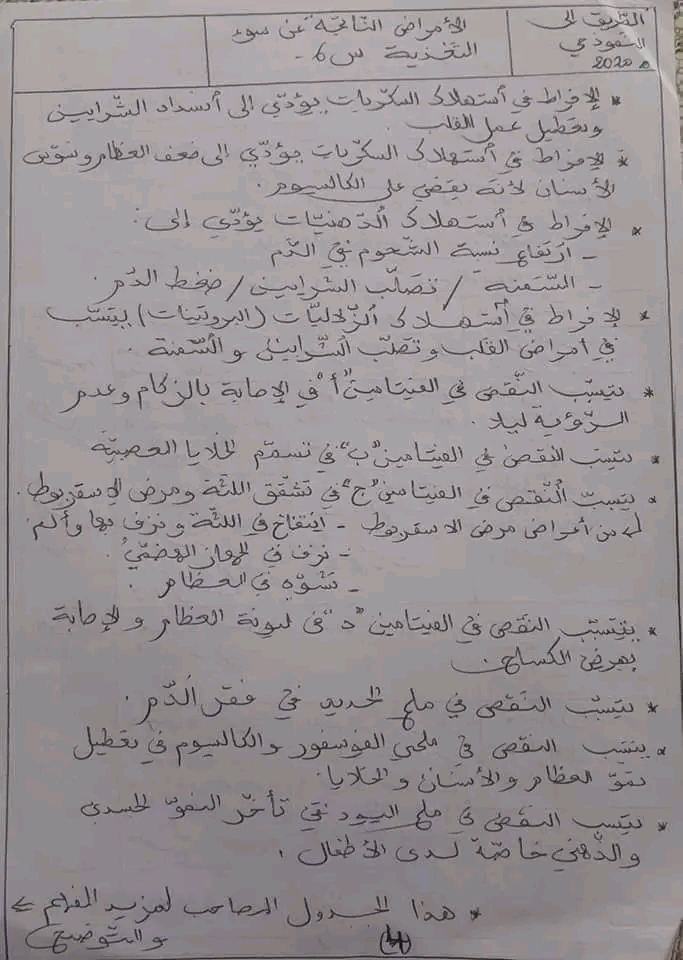 الطريق إلى
النموذجي
2020
الأمراض الناتجة عن سوء
التغذية س 6.
* الإفراط في استهلاك السكريات يؤدّي إلى انسداد الشّرايين
وتعطيل عمل القلب.
* الإفراط في استهلاك السكّريات يؤدّي إلى ضعف العظام وتسوّس
الأسنان لأنّه يقضي على الكالسيوم.
* الإفراط في استهلاك الدّهنيّات يؤدّي إلى:
- ارتفاع نسبة الشّحوم في الدّم
- السّمنة / تصلّب الشرايين / ضغط الدّم.
* الإفراط في استهلاك الزّلاليّات (البروتينات) يتسبّب
في أمراض القلب وتصلّب الشّرايين والسّمنة.
* يتسبّب النّقص في الفيتامين "أ" في الإصابة بالزكام وعدم
الرّؤية ليلا.
* يتسبّب النقص في الفيتامين "ب" في تسمّم الخلايا العصبيّة
* يتسبّب النّقص في الفيتامين "ج" في تشقّق اللثّة ومرض الاسقربوط.
من أعراض مرض الاسقربوط - انتفاخ في اللثّة ونزف بها وألم.
- نزف في الجهاز الهضميّ.
- تشوّه في العظام.
* يتسبّب النقص في الفيتامين "د" في ليونة العظام والإصابة
بمرض الكساح.
* يتسبّب النّقص في ملح الحديد في فقر الدّم.
* يتسبّب النقص في ملحي الفوسفور والكالسيوم في تعطيل
نموّ العظام والأسنان والخلايا.
* يتسبّب النّقص في ملح اليود في تأخّر النموّ الجسدي
والذّهني خاصّة لدى الأطفال.
* هذا الجدول المصاحب لمزيد الفهم
والتوضيح